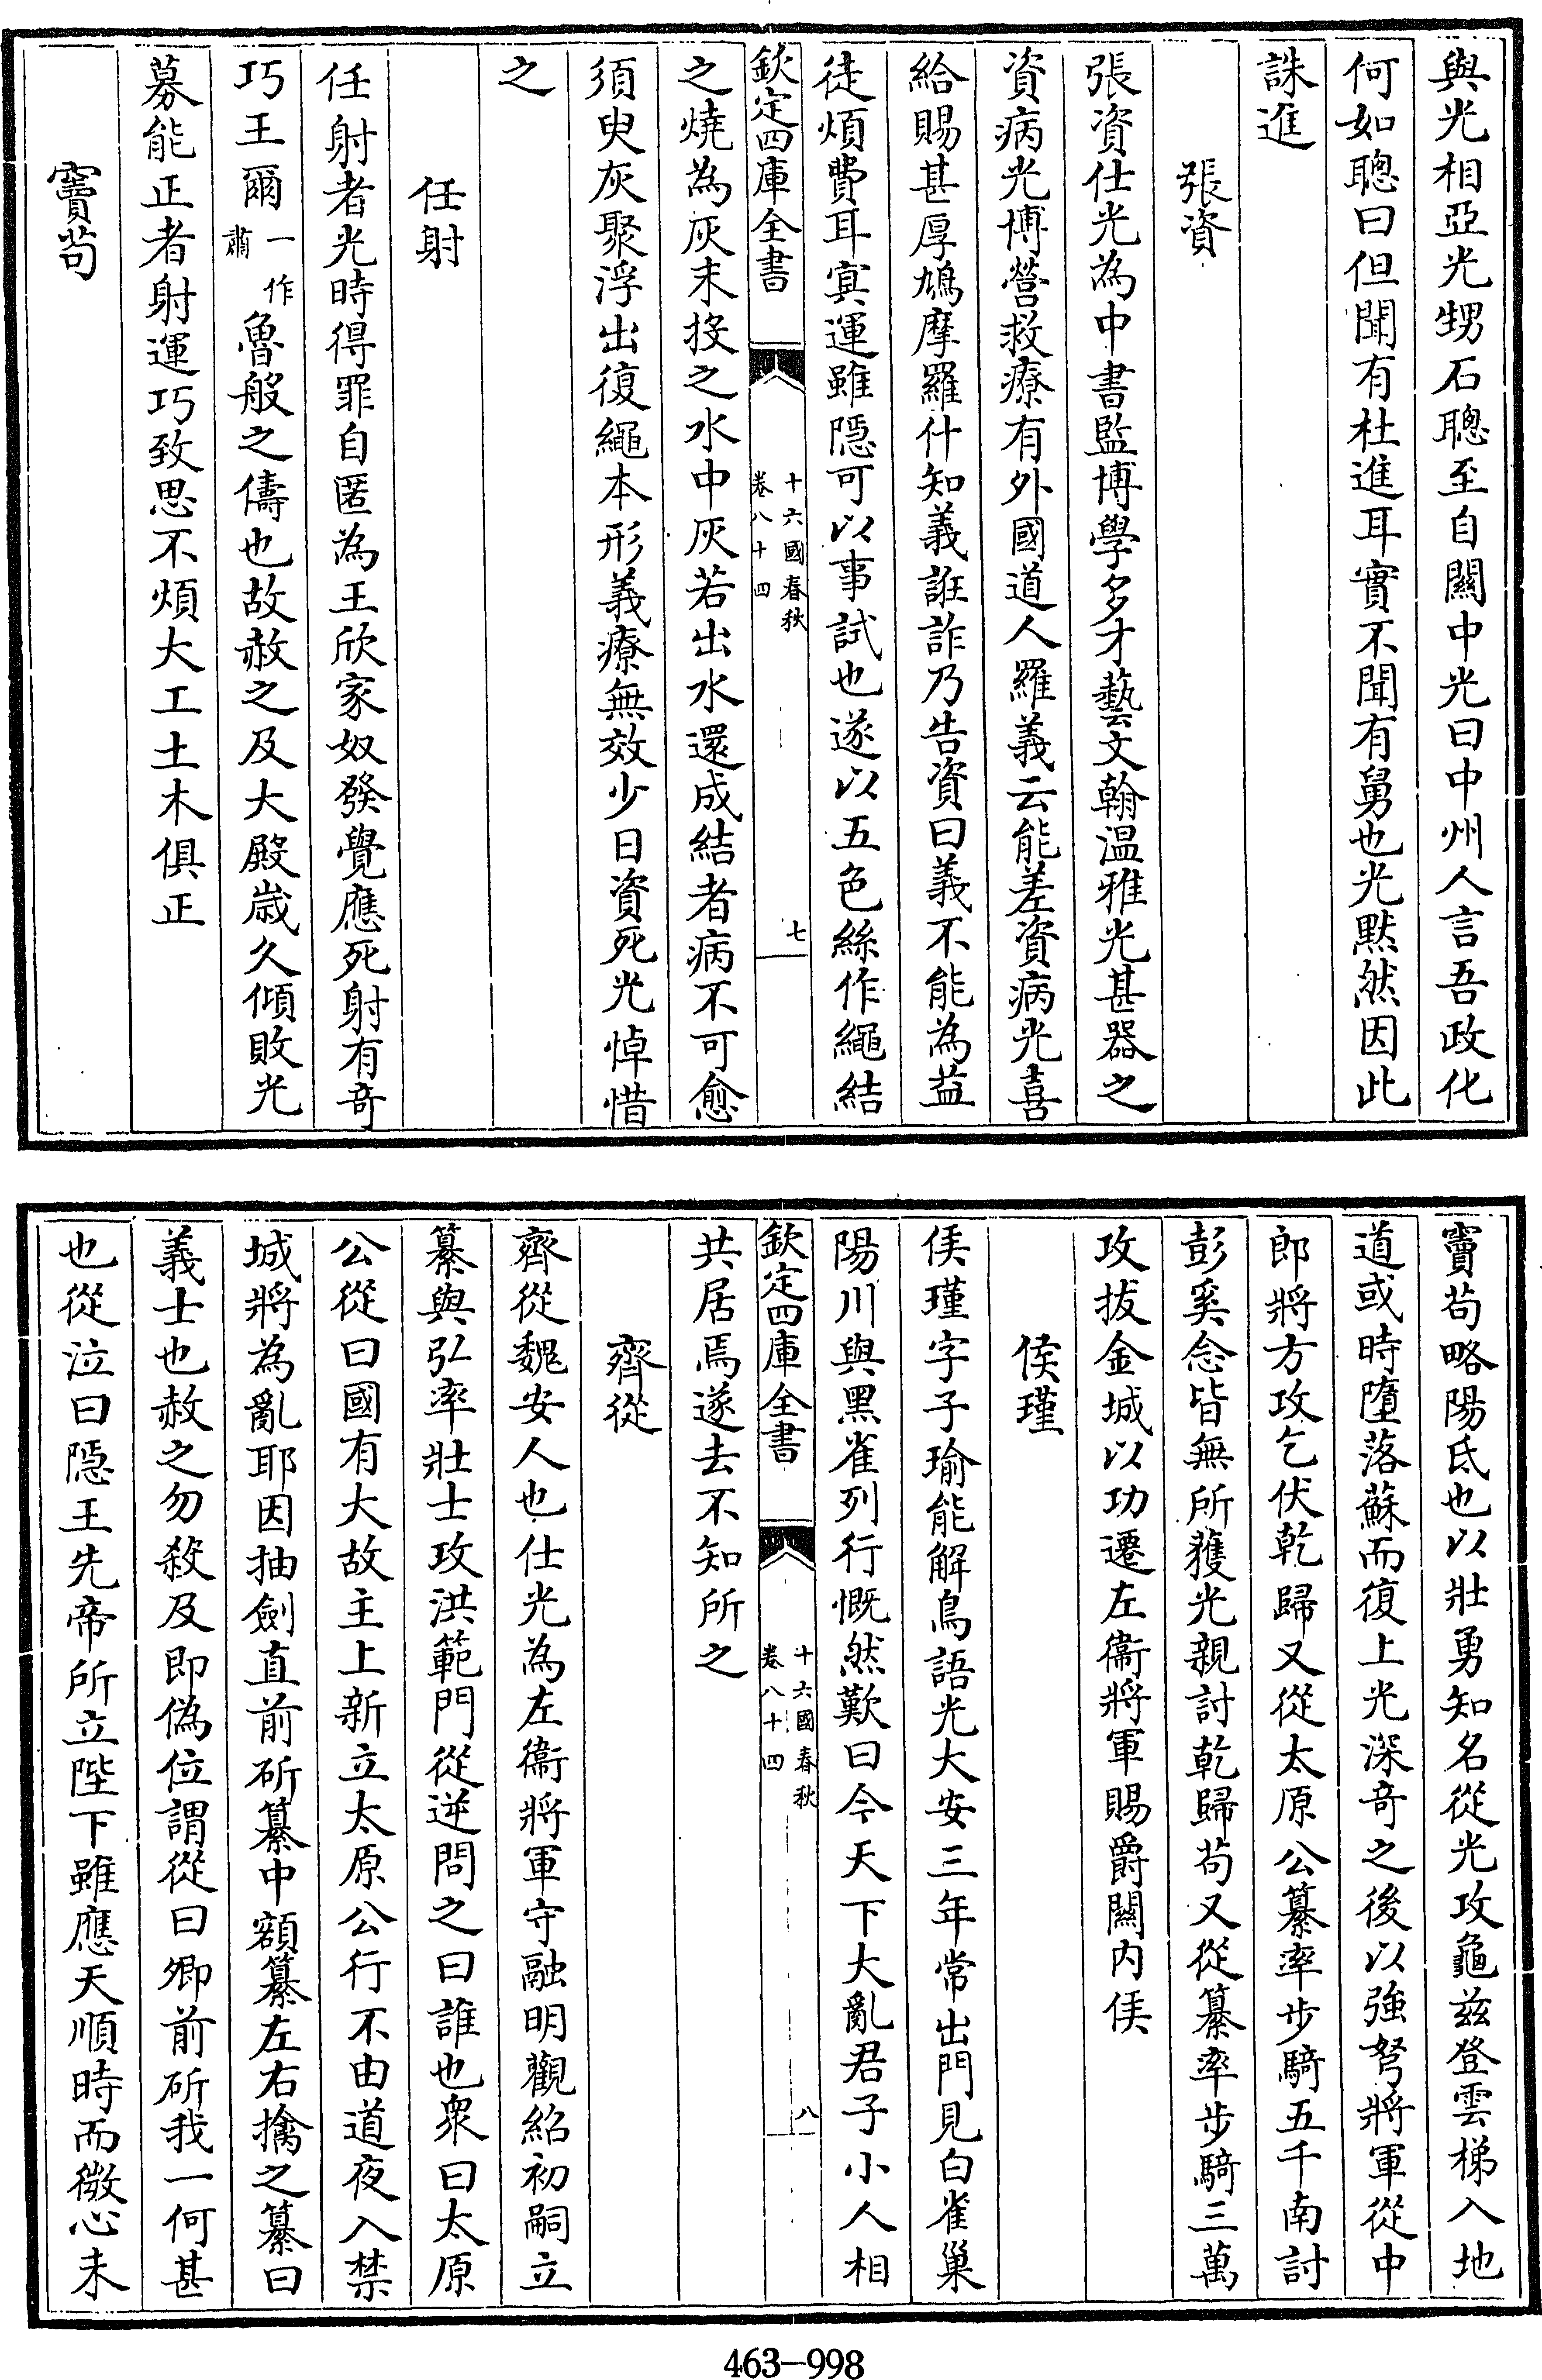 與光相亞光甥石聰至自關中光曰中州人言吾政化
何如聰曰但聞有杜進耳實不聞有舅也光默然因此
誅進
張資
張資仕光為中書監博學多才藝文翰温雅光甚器之
資病光博營救療有外國道人羅義云能差資病光喜
給賜甚厚鳩摩羅什知義誑詐乃告資曰義不能為益
徒煩費耳㝠運雖隱可以事試也遂以五色絲作繩結
欽定四庫全書
十六國春秋
卷八十四
七
之燒為灰末投之水中灰若出水還成結者病不可愈
須臾灰聚浮出復繩本形義療無效少日資死光悼惜
之
任射
任射者光時得罪自匿為王欣家奴發覺應死射有竒
巧王爾一作肅魯般之儔也故赦之及大殿歳久傾敗光
募能正者射運巧致思不煩大工土木俱正
竇茍
竇茍略陽氐也以壯勇知名從光攻龜兹登雲梯入地
道或時墮落蘇而復上光深竒之後以強弩將軍從中
郎將方攻乞伏乾歸又從太原公纂率步騎五千南討
彭奚念皆無所獲光親討乾歸茍又從纂率步騎三萬
攻拔金城以功遷左衞將軍賜爵關内侯
侯瑾
侯瑾字子瑜能解鳥語光大安三年常出門見白雀巢
陽川與黑雀列行慨然歎曰今天下大亂君子小人相
欽定四庫全書
十六國春秋
卷八十四
八
共居焉遂去不知所之
齊從
齊從魏安人也仕光為左衞將軍守融明觀紹初嗣立
纂與弘率壯士攻洪範門從逆問之曰誰也衆曰太原
公從曰國有大故主上新立太原公行不由道夜入禁
城將為亂耶因抽劍直前斫纂中額纂左右擒之纂曰
義士也赦之勿殺及即偽位謂從曰卿前斫我一何甚
也從泣曰隱王先帝所立陛下雖應天順時而微心未
463-998